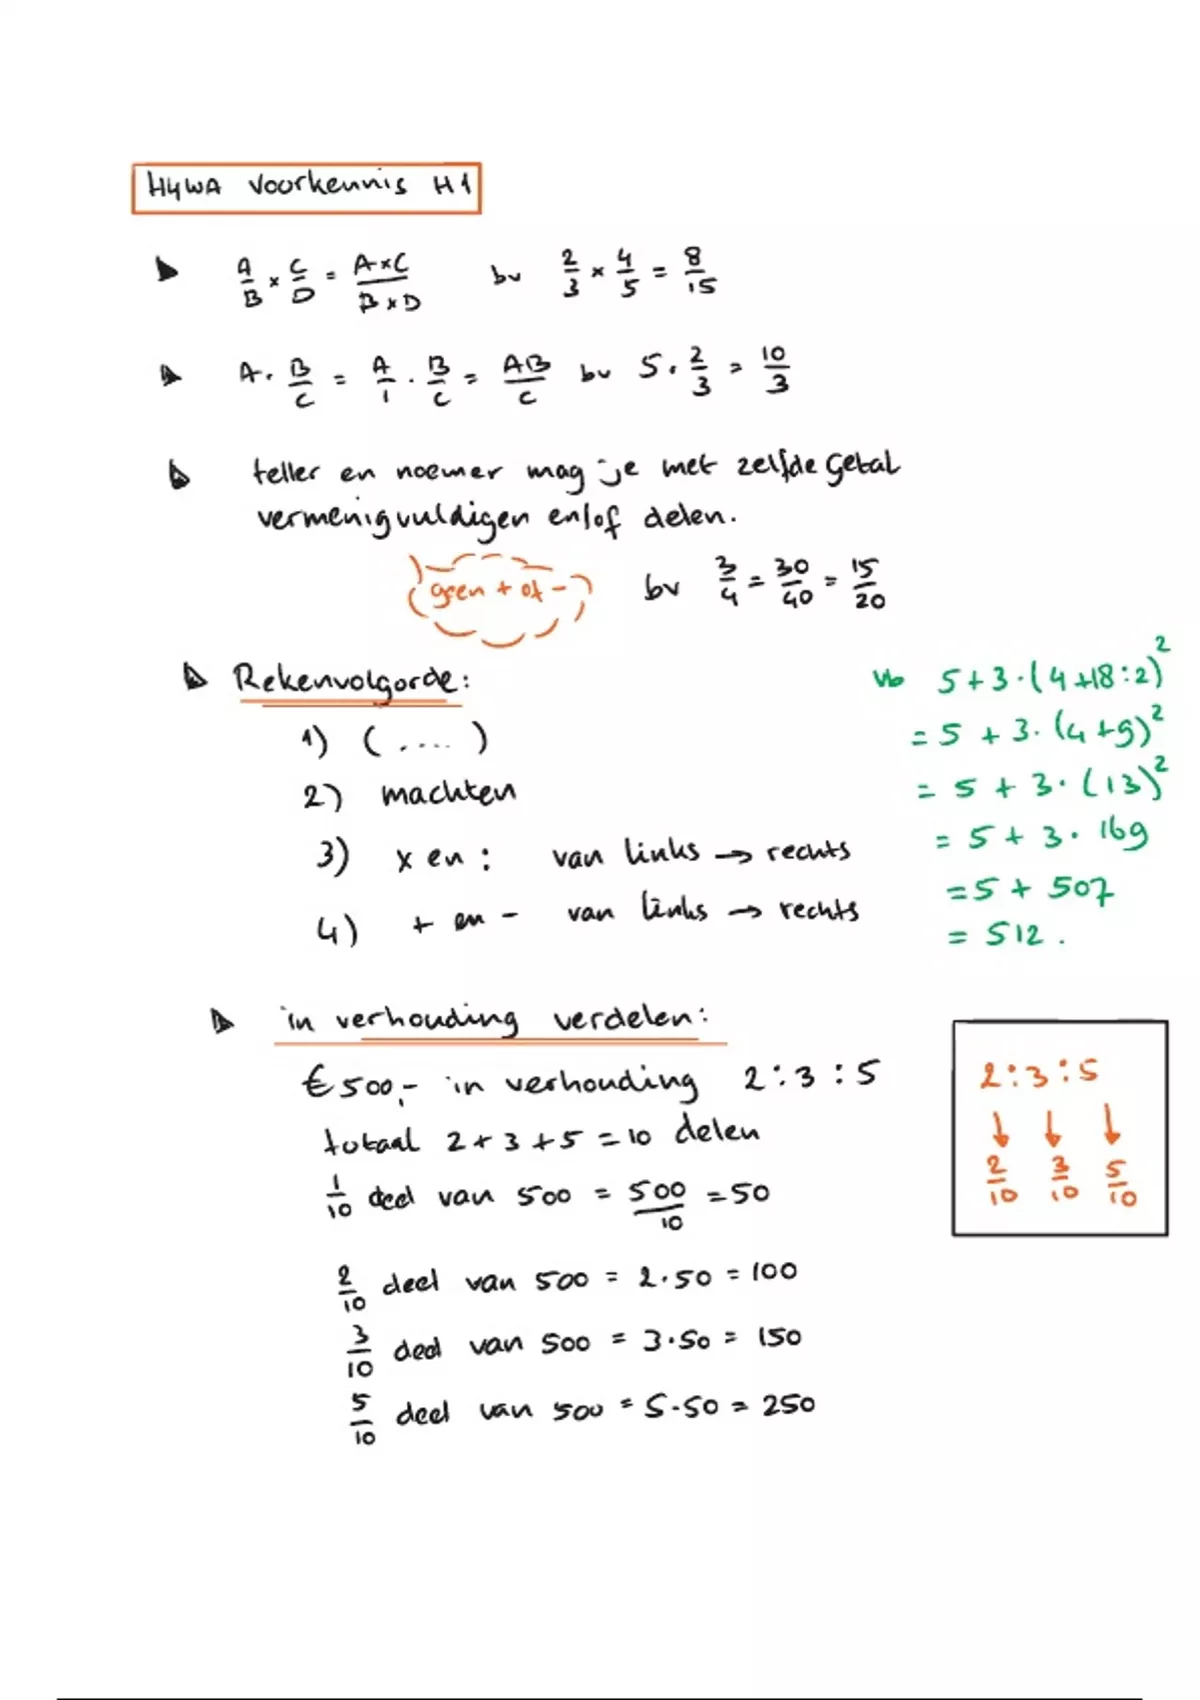 H4WA Voorkennis H1
A/B × C/D = A×C/B×D bv 2/3 × 4/5 = 8/15
A · B/C = A/1 · B/C = AB/C bv 5 · 2/3 = 10/3
teller en noemer mag je met zelfde getal
vermenigvuldigen en/of delen.
geen + of -
bv 3/4 = 30/40 = 15/20
Rekenvolgorde:
1) (....)
2) machten
3) x en : van links → rechts
4) + en - van links → rechts
Vb 5+3·(4+18:2)²
= 5 + 3·(4+9)²
= 5 + 3·(13)²
= 5 + 3·169
= 5 + 507
= 512.
in verhouding verdelen:
€500,- in verhouding 2:3:5
totaal 2+3+5=10 delen
1/10 deel van 500 = 500/10 = 50
2/10 deel van 500 = 2·50 = 100
3/10 deel van 500 = 3·50 = 150
5/10 deel van 500 = 5·50 = 250
2:3:5
↓ ↓ ↓
2/10 3/10 5/10